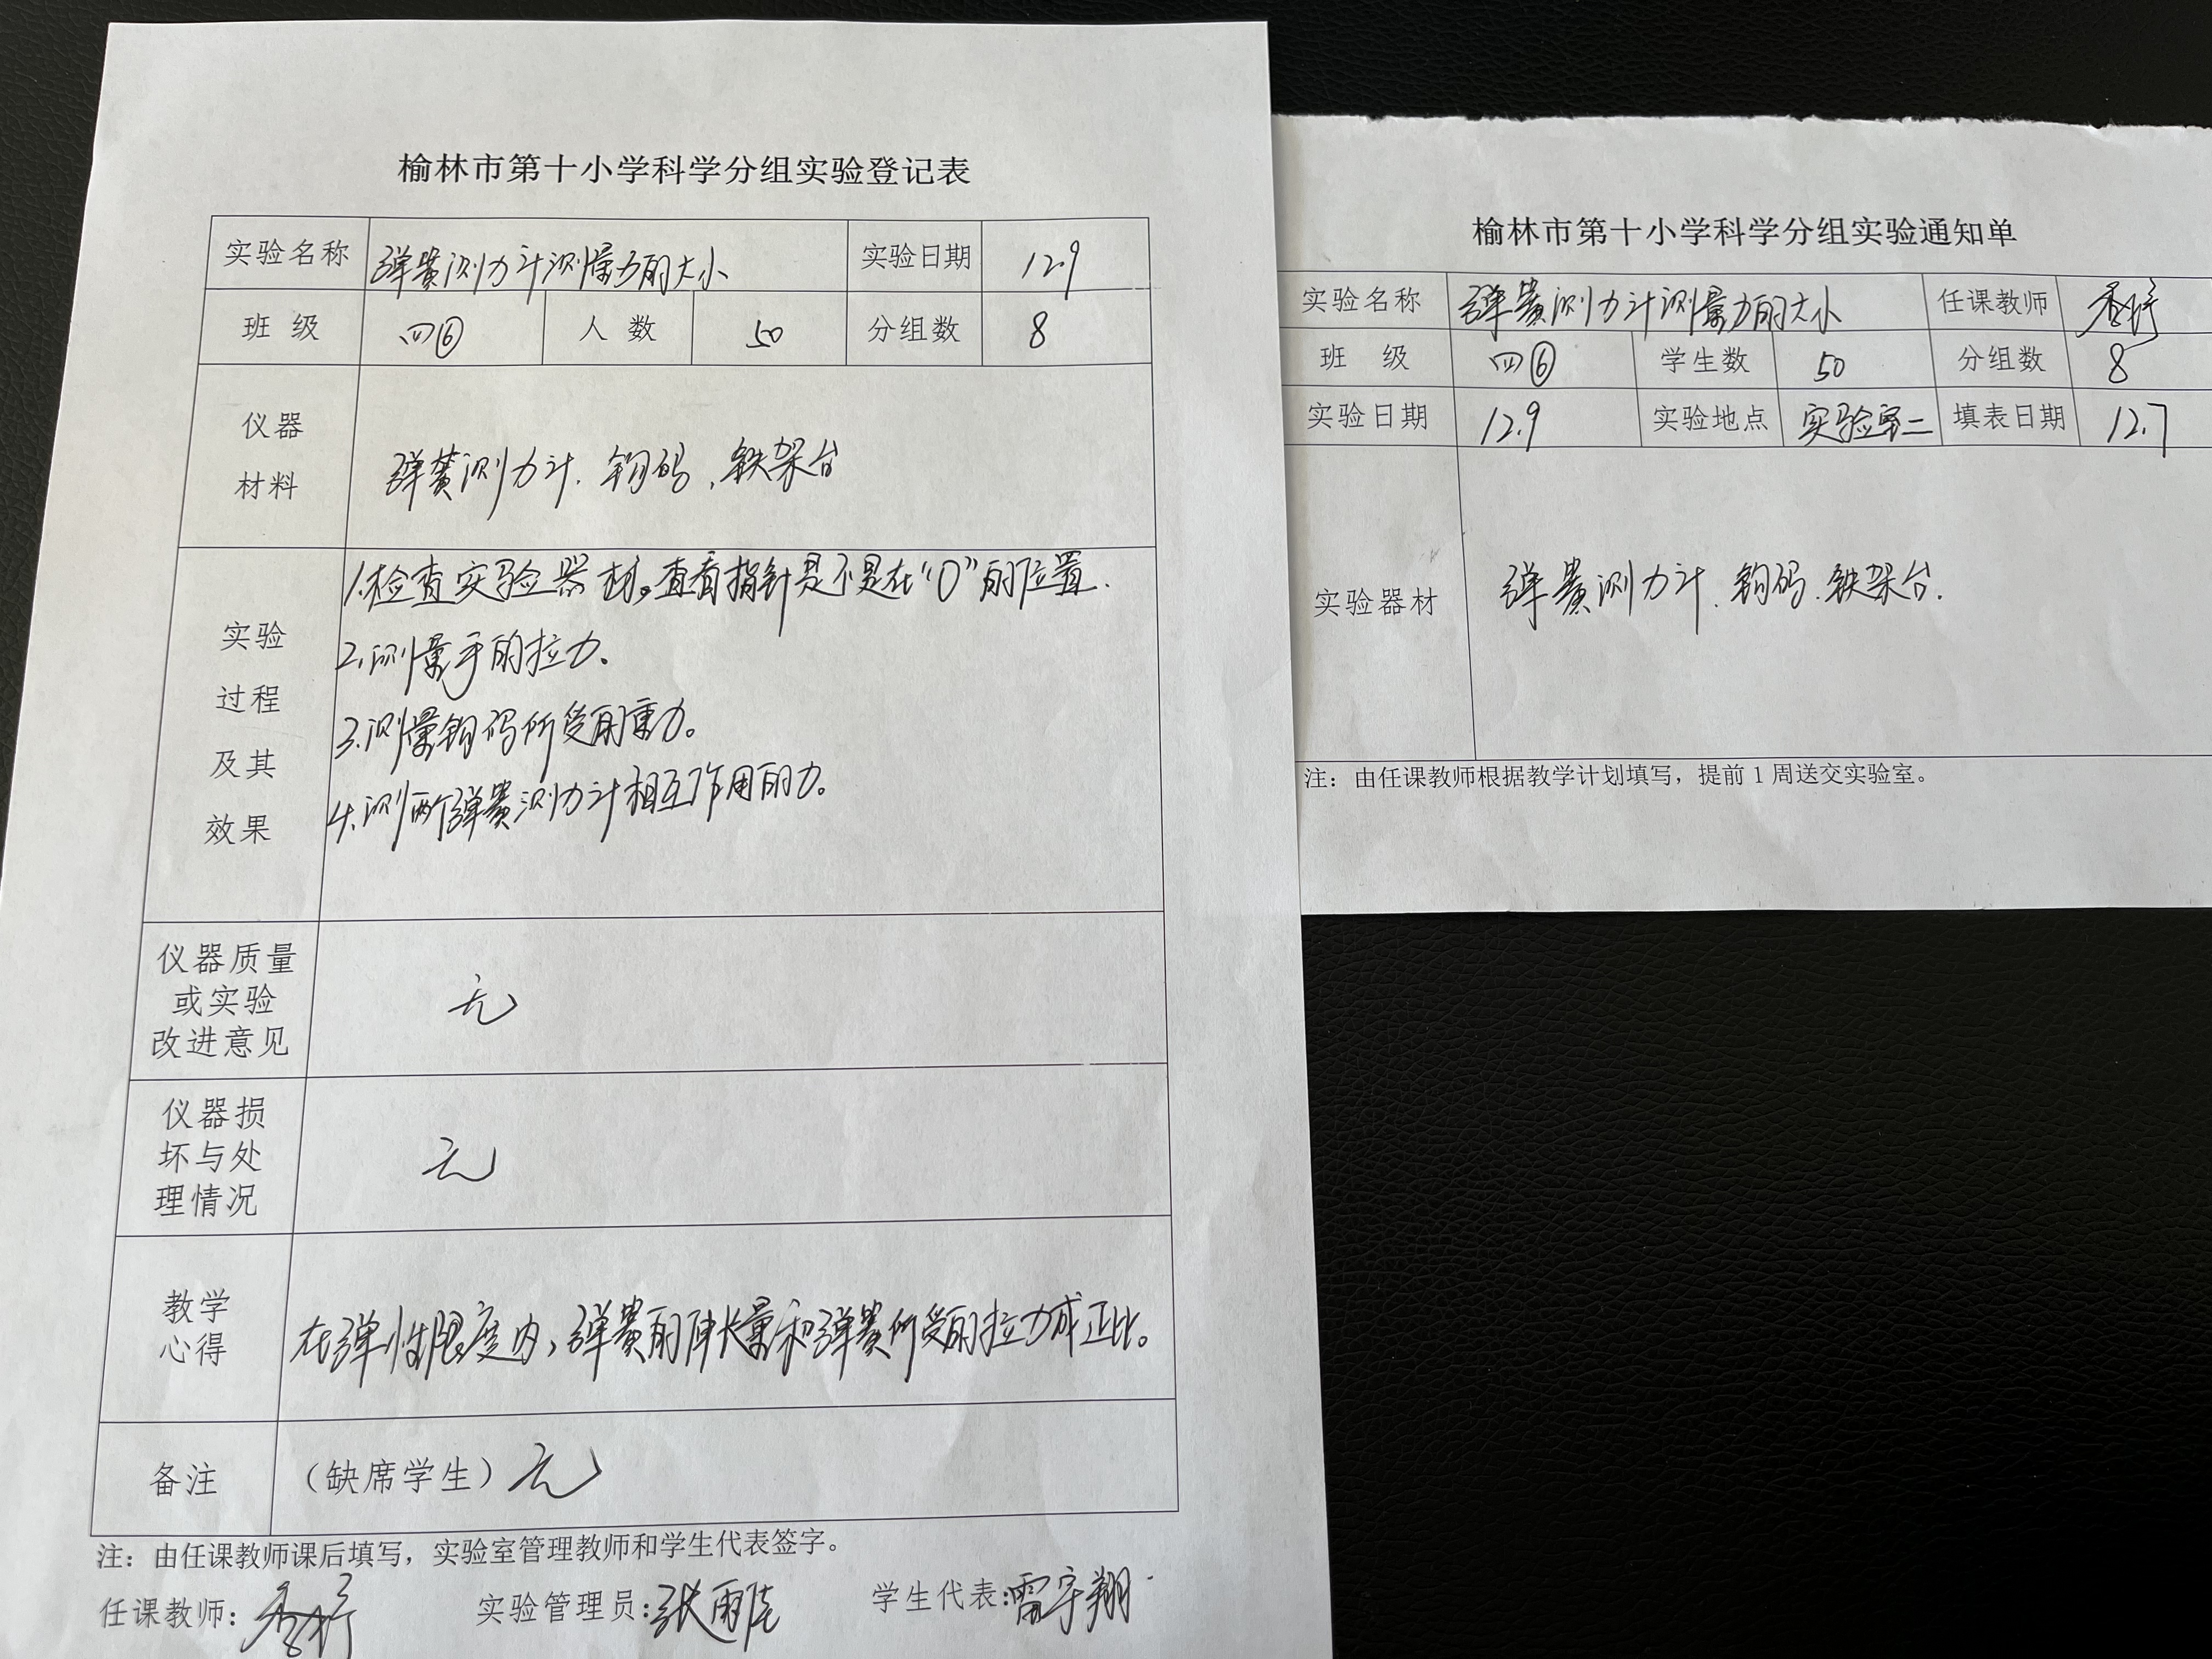 榆林市第十小学科学分组实验登记表
实验名称 弹簧测力计测量力的大小 实验日期 12.9
班 级 四⑥ 人 数 50 分组数 8
仪器
材料
弹簧测力计、钩码、铁架台
实验
过程
及其
效果
1.检查实验器材。查看指针是不是在“0”的位置.
2.测量手的拉力。
3.测量钩码所受的重力。
4.测两个弹簧测力计相互作用的力。
仪器质量
或实验
改进意见
无
仪器损
坏与处
理情况
无
教学
心得
在弹性限度内,弹簧的伸长量和弹簧所受的拉力成正比。
备注 (缺席学生) 无
注:由任课教师课后填写,实验室管理教师和学生代表签字。
任课教师: 实验管理员:张雨 学生代表:雷宇翔
榆林市第十小学科学分组实验通知单
实验名称 弹簧测力计测量力的大小 任课教师
班 级 四⑥ 学生数 50 分组数 8
实验日期 12.9 实验地点 实验室二 填表日期 12.7
实验器材 弹簧测力计、钩码、铁架台.
注:由任课教师根据教学计划填写,提前 1 周送交实验室。